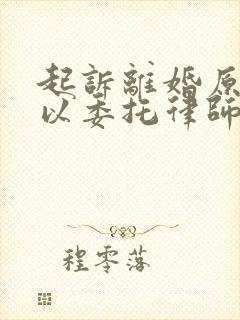 起訴離婚原
以委托律師
程零落